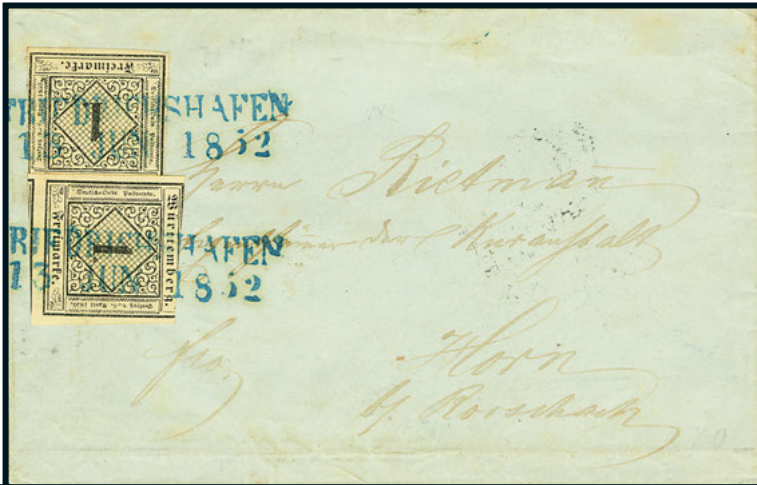 Freimarke.
1
FRIEDRICHSHAFEN
13 JUN 1852
Württemberg.
Freimarke.
1
FRIEDRICHSHAFEN
13 JUN 1852
Herrn Rietmann
der Kuranstalt
fro. Horn
b/ Rorschach